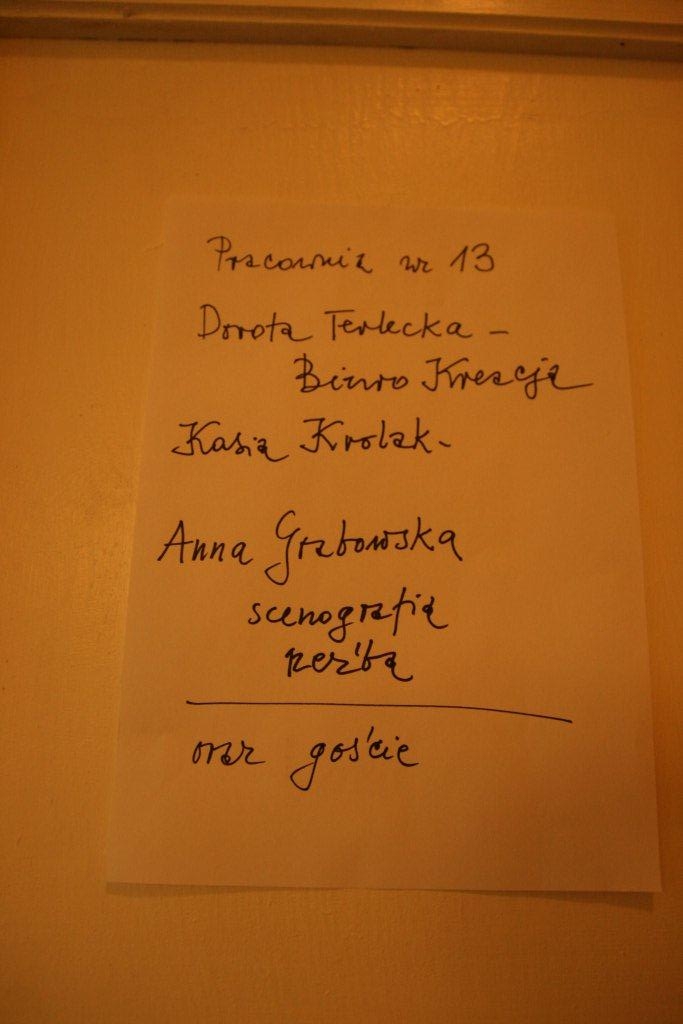 Pracownia nr 13
Dorota Terlecka –
Biuro Kreacja
Kasia Krolak -
Anna Grabowska
scenografia
rzeźba
oraz goście